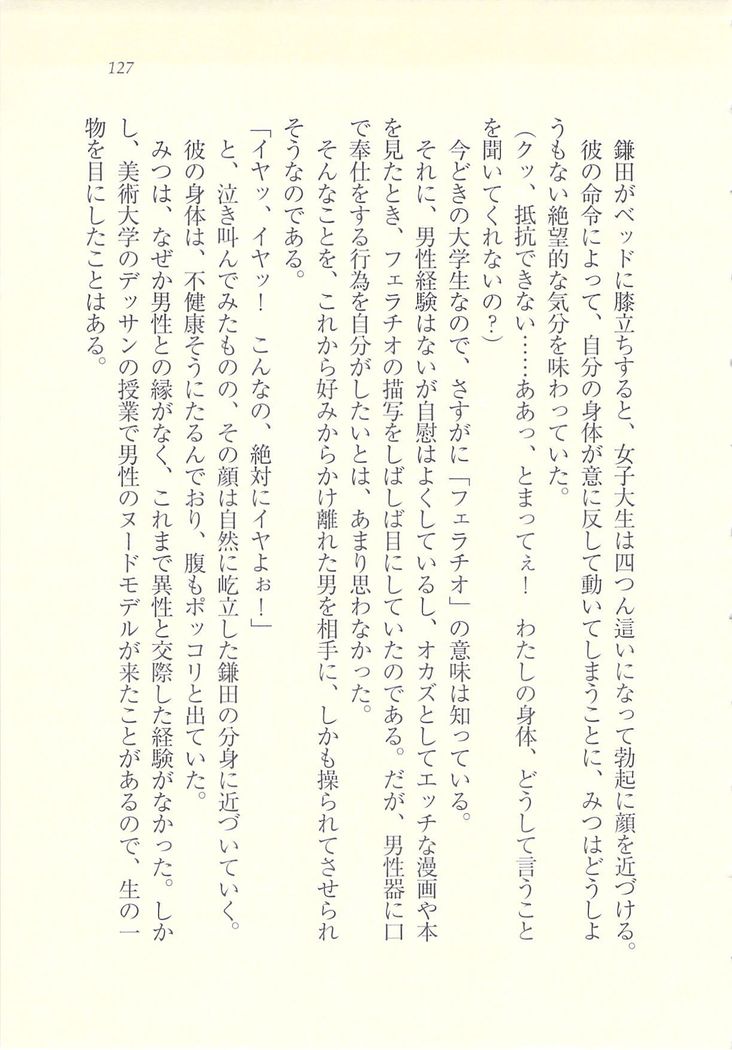 127
鎌田がベッドに膝立ちすると、女子大生は四つん這いになって勃起に顔を近づける。
彼の命令によって、自分の身体が意に反して動いてしまうことに、みつはどうしよ
うもない絶望的な気分を味わっていた。
(クッ、抵抗できない……ああっ、とまってぇ！　わたしの身体、どうして言うこと
を聞いてくれないの？)
今どきの大学生なので、さすがに「フェラチオ」の意味は知っている。
それに、男性経験はないが自慰はよくしているし、オカズとしてエッチな漫画や本
を見たとき、フェラチオの描写をしばしば目にしていたのである。だが、男性器に口
で奉仕をする行為を自分がしたいとは、あまり思わなかった。
そんなことを、これから好みからかけ離れた男を相手に、しかも操られてさせられ
そうなのである。
「イヤッ、イヤッ！　こんなの、絶対にイヤよぉ！」
と、泣き叫んでみたものの、その顔は自然に屹立した鎌田の分身に近づいていく。
彼の身体は、不健康そうにたるんでおり、腹もポッコリと出ていた。
みつは、なぜか男性との縁がなく、これまで異性と交際した経験がなかった。しか
し、美術大学のデッサンの授業で男性のヌードモデルが来たことがあるので、生の一
物を目にしたことはある。